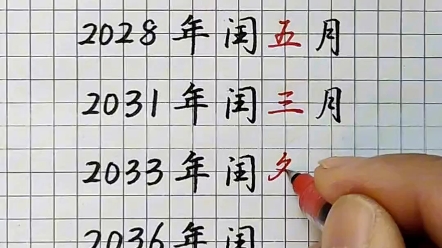 2028年闰五月
2031年闰三月
2033年闰
2036年闰